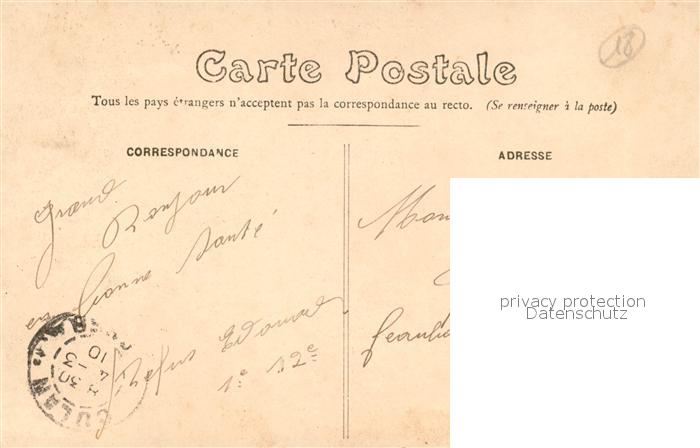 18
Carte Postale
Tous les pays étrangers n'acceptent pas la correspondance au recto. (Se renseigner à la poste)
CORRESPONDANCE
ADRESSE
Grand
Bonjour
en bonne santé
Edouard
1e 12e
8 30
4 -3
10
privacy protection
Datenschutz